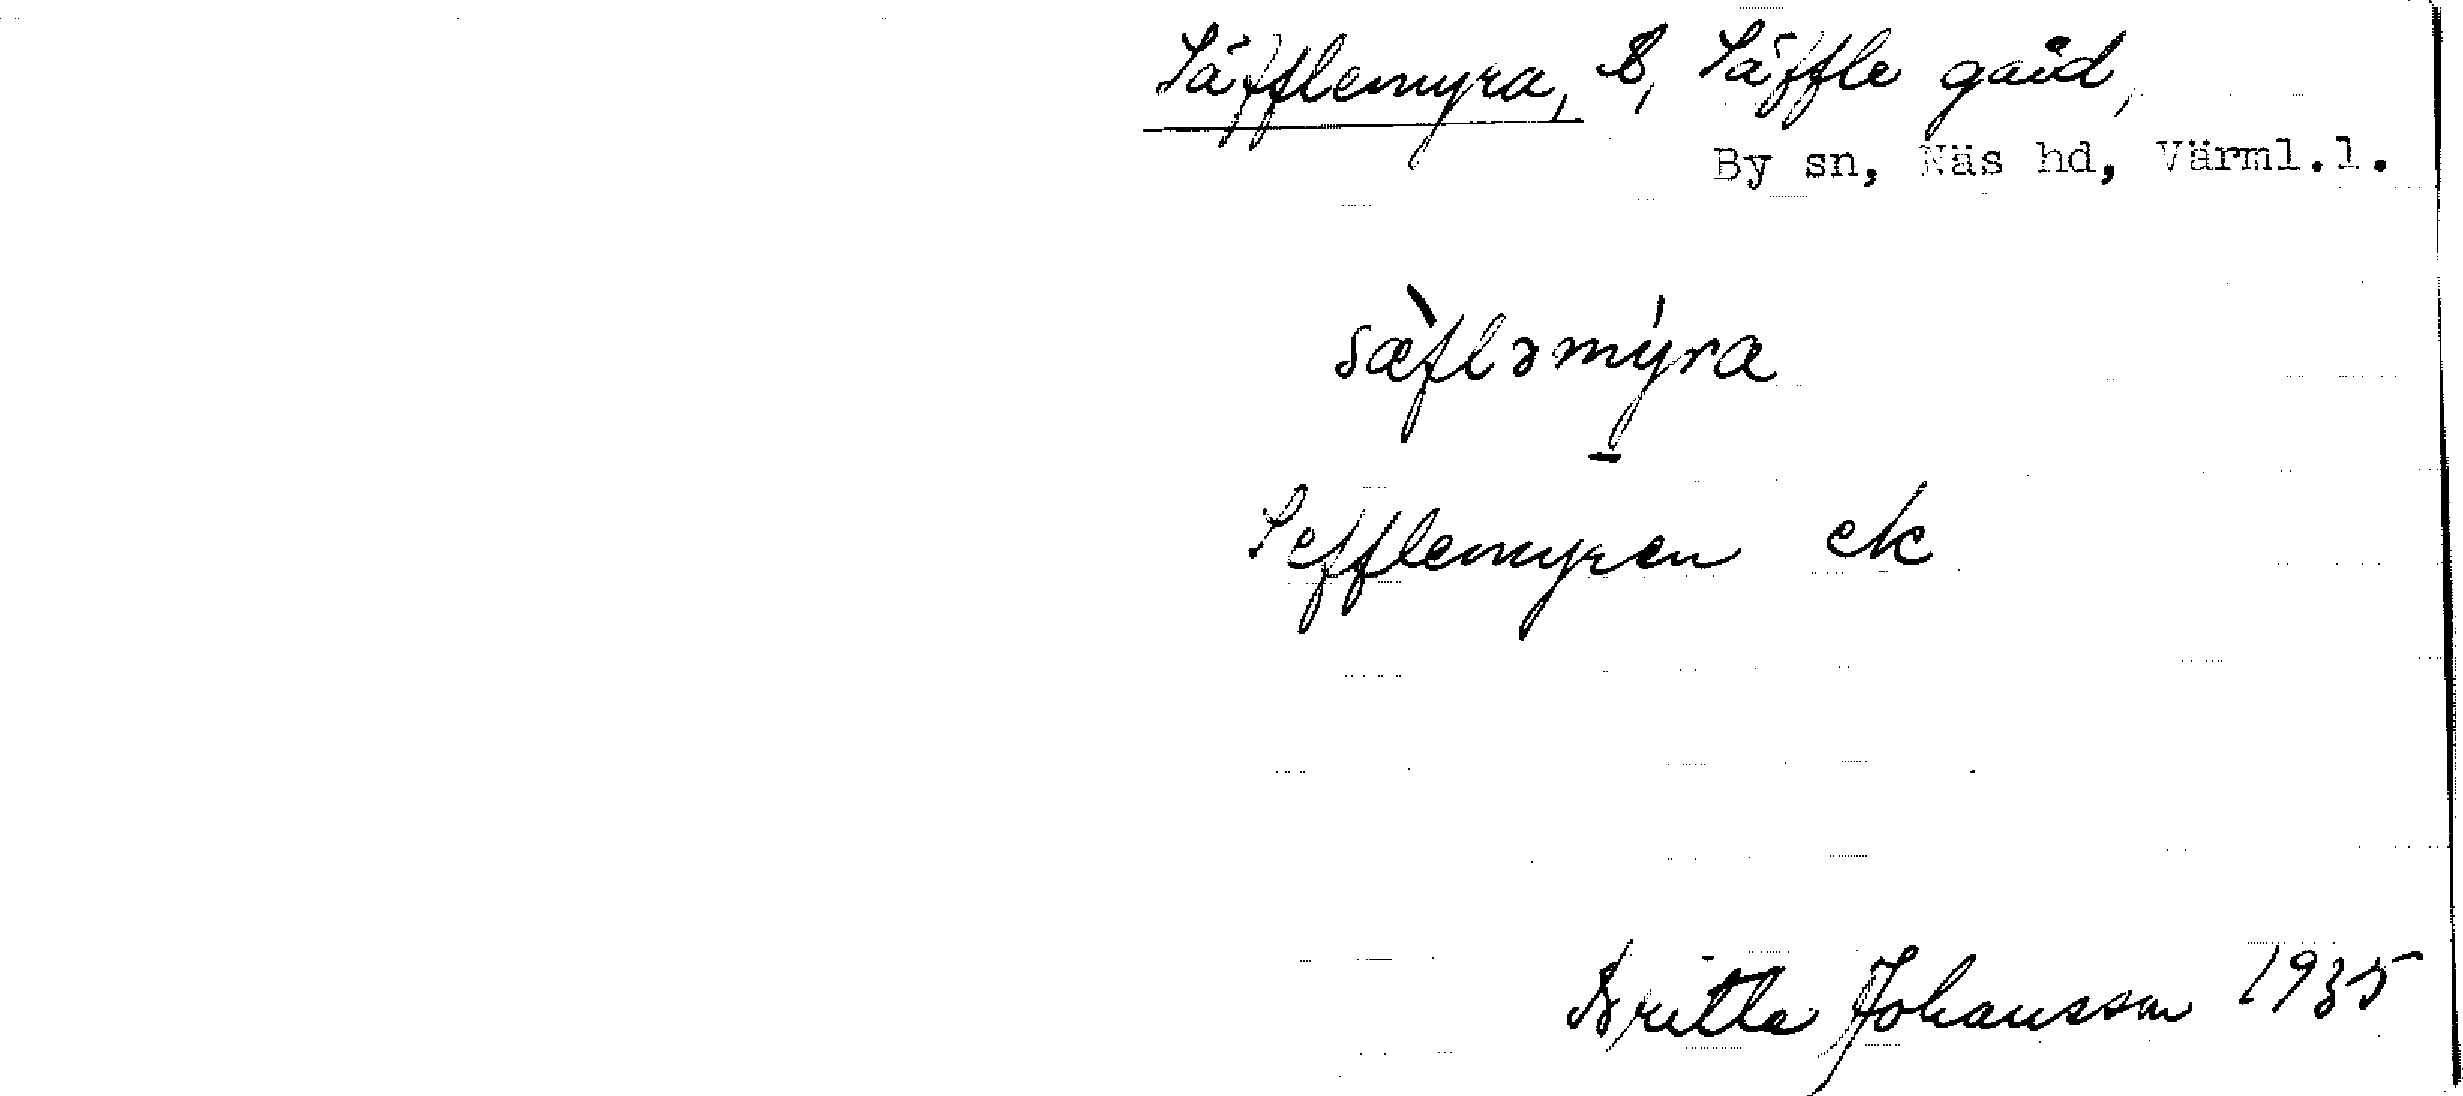 Säfflemyra, B, Säffle gård,
By sn, Näs hd, Värml.l.
sæ̀fləmýra
Sefflemyren ek
Britta Johansson 1935